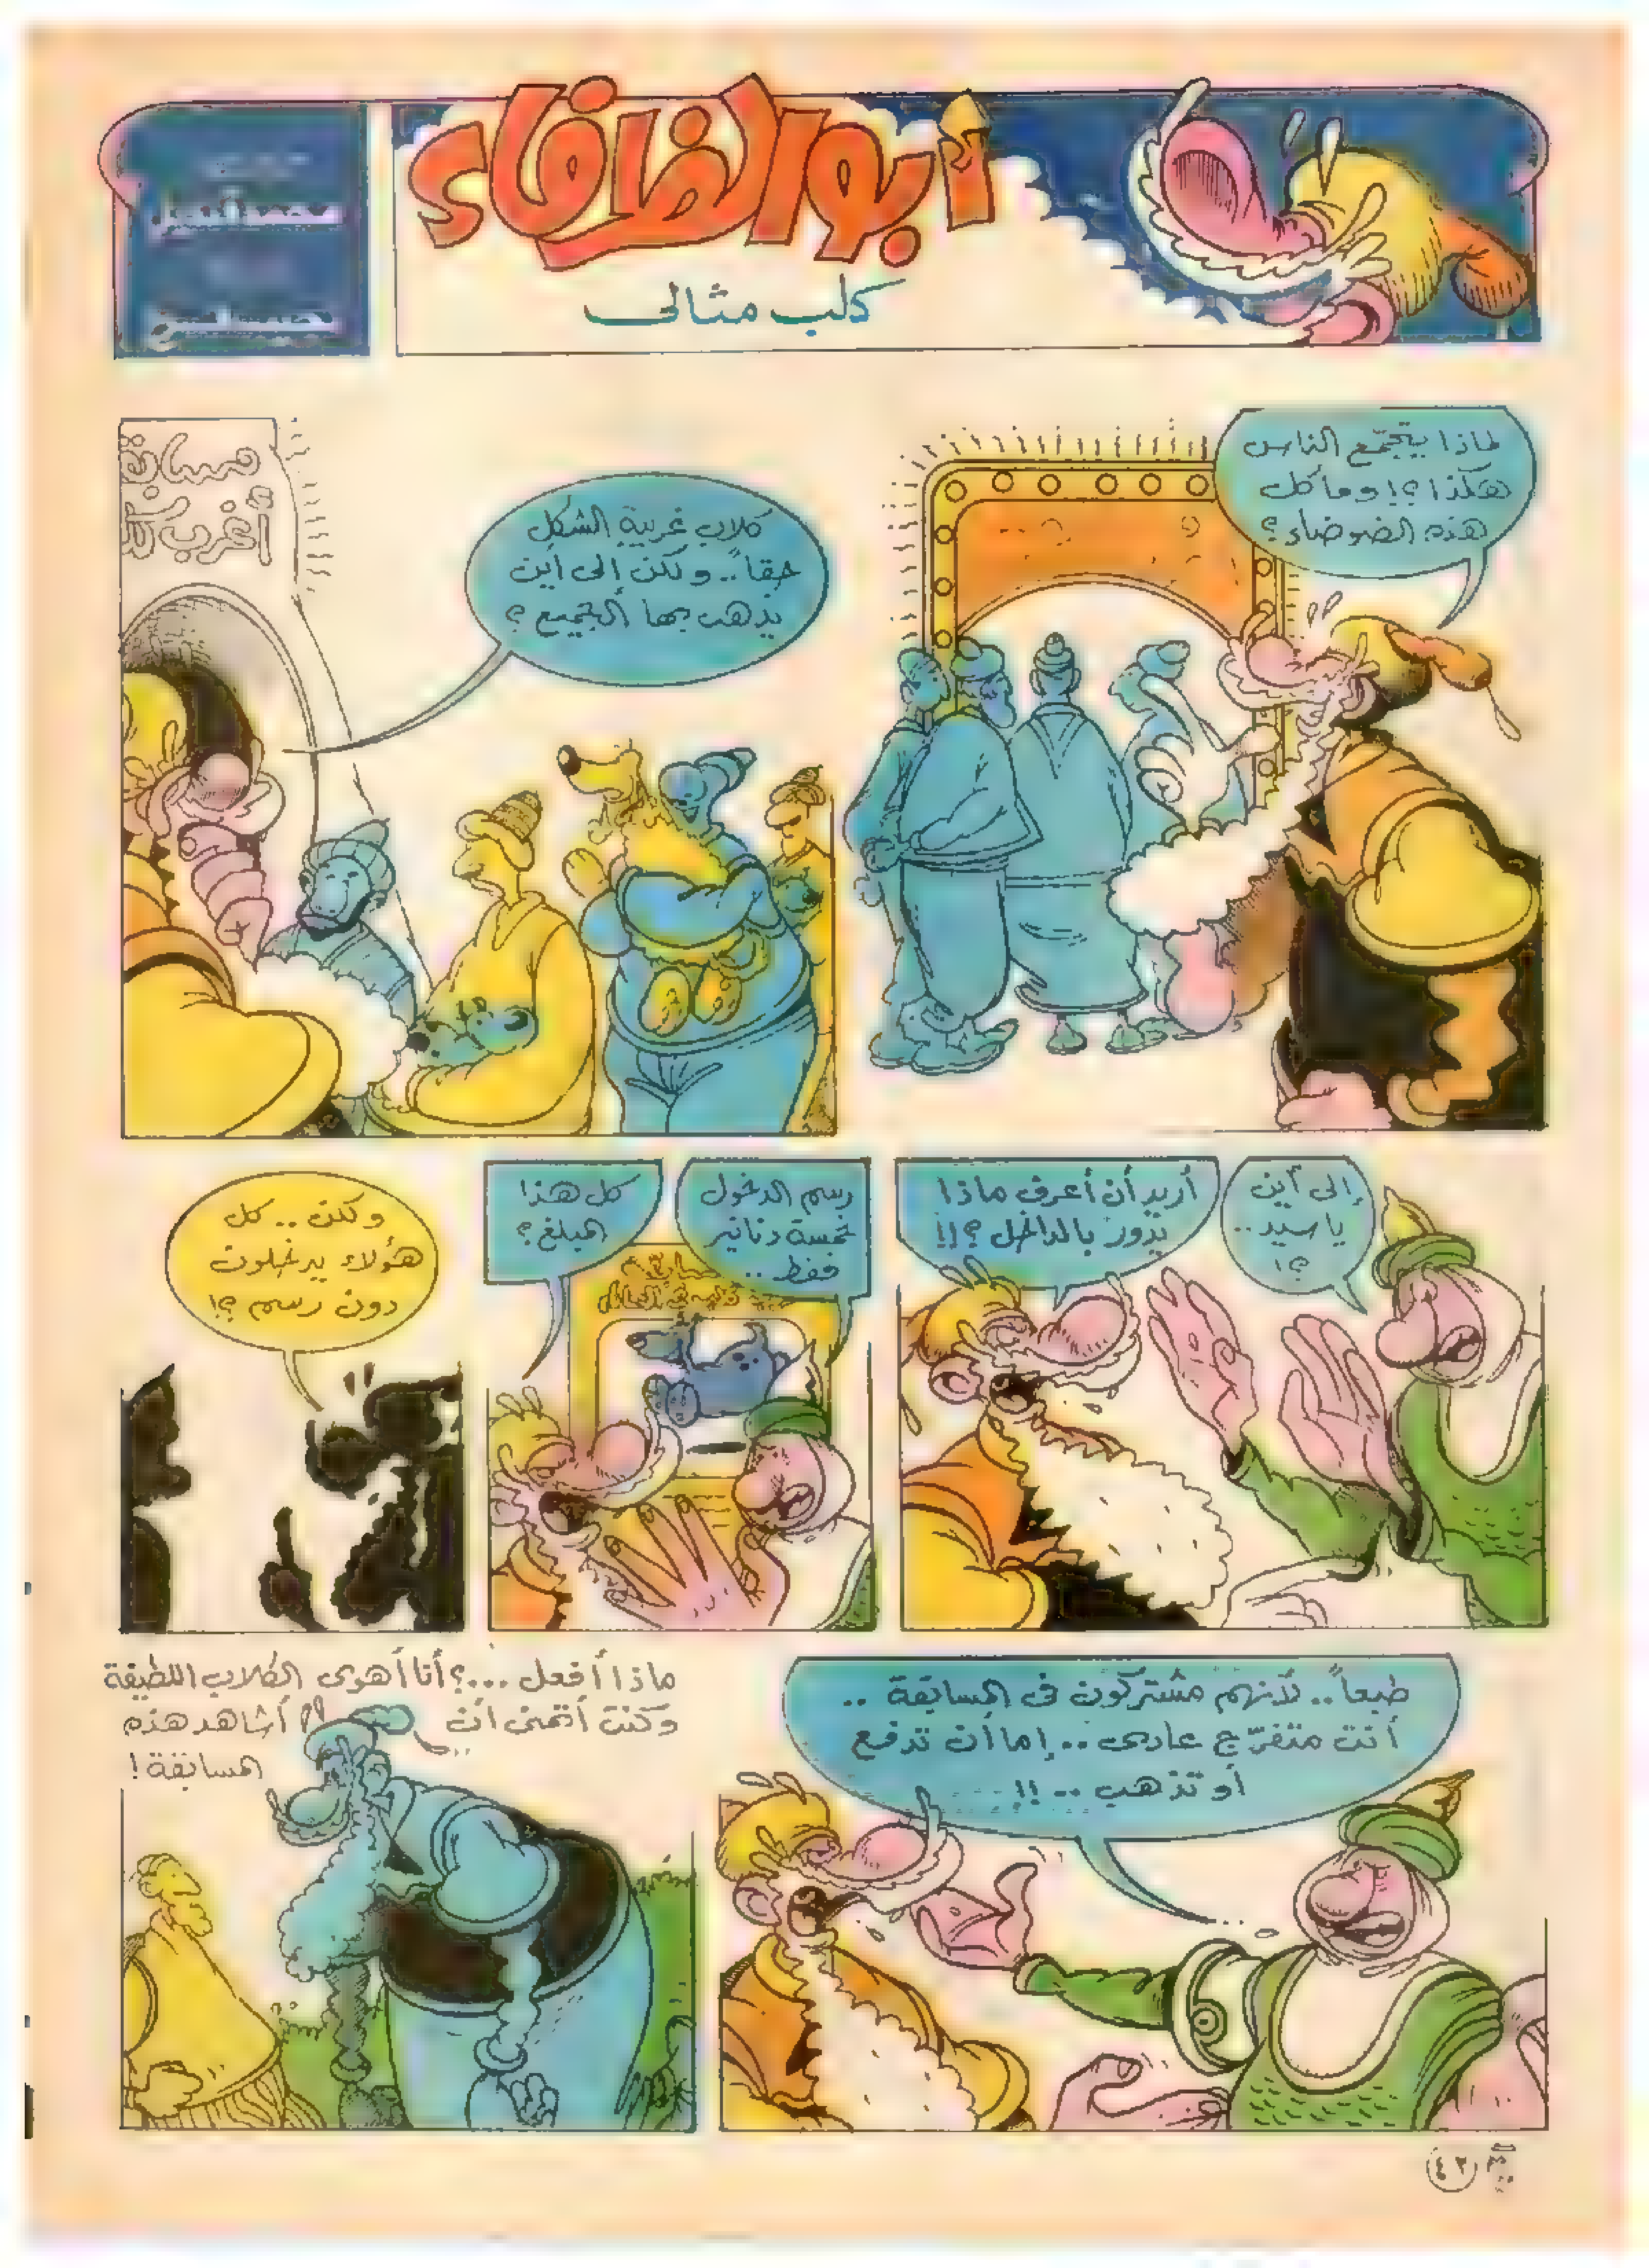 أبو الظرفاء
كلب مثالى
لماذا يتجمّع الناس
هكذا؟! وما كل
هذه الضوضاء؟
مسابقة
أغرب كلب
كلاب غريبة الشكل
حقاً.. ولكن إلى أين
يذهب بها الجميع؟
إلى أين
يا سيد..
؟!
أريد أن أعرف ماذا
يدور بالداخل؟!!
رسم الدخول
خمسة دنانير
فقط..
كل هذا
المبلغ؟
ولكن.. كل
هؤلاء يدخلون
دون رسم؟!
طبعاً.. لأنهم مشتركون فى المسابقة..
أنت متفرّج عادى.. إما أن تدفع
أو تذهب..!!
ماذا أفعل...؟ أنا أهوى الكلاب اللطيفة
وكنت أتمنى أن أشاهد هذه
المسابقة!
٤٢